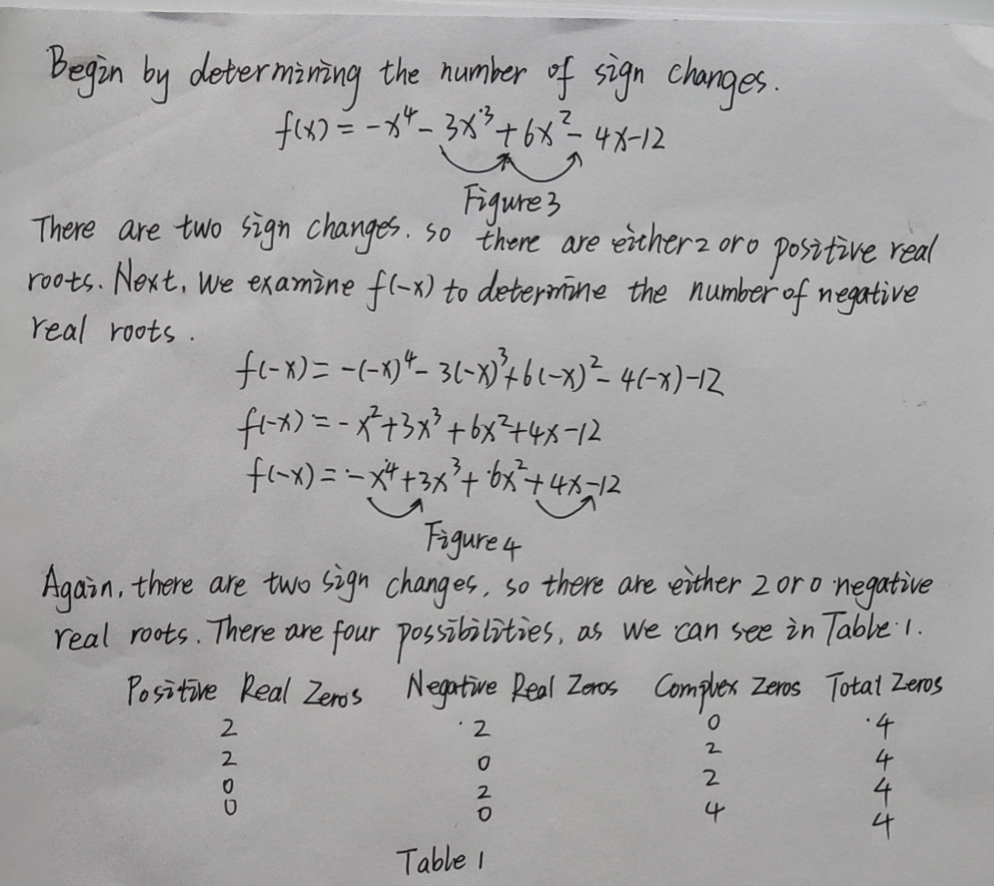 Begin by determining the number of sign changes.
f(x) = -x⁴ - 3x³ + 6x² - 4x - 12
Figure 3
There are two sign changes. so there are either 2 or 0 positive real
roots. Next, We examine f(-x) to determine the number of negative
real roots.
f(-x) = -(-x)⁴ - 3(-x)³ + 6(-x)² - 4(-x) - 12
f(-x) = -x² + 3x³ + 6x² + 4x - 12
f(-x) = -x⁴ + 3x³ + 6x² + 4x - 12
Figure 4
Again, there are two sign changes, so there are either 2 or 0 negative
real roots. There are four possibilities, as we can see in Table 1.
Positive Real Zeros Negative Real Zeros Complex Zeros Total Zeros
2 2 0 4
2 0 2 4
0 2 2 4
0 0 4 4
Table 1